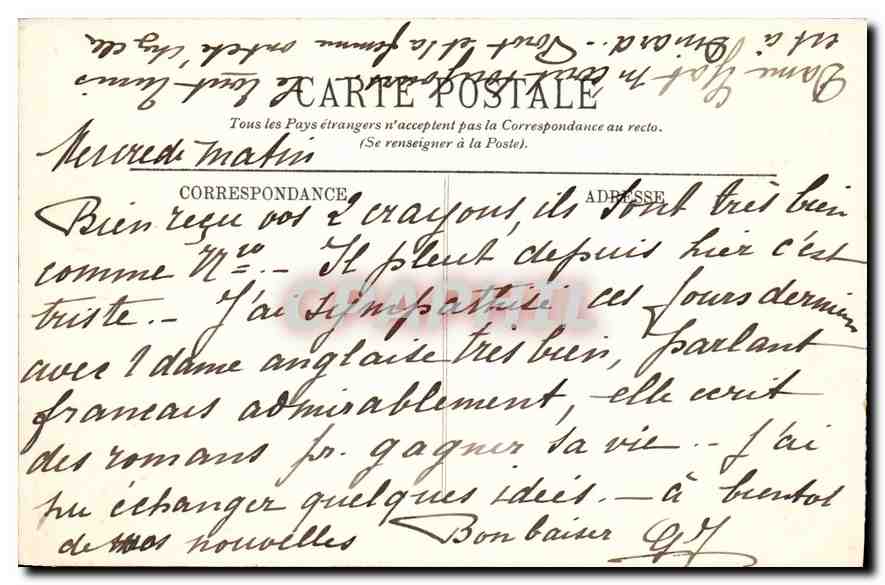 CARTE POSTALE
Tous les Pays étrangers n'acceptent pas la Correspondance au recto.
(Se renseigner à la Poste).
Mercredi matin
CORRESPONDANCE
ADRESSE
Bien reçu vos 2 crayons, ils sont très bien
comme Nro. — Il pleut depuis hier c'est
triste. — J'ai sympathisé ces jours derniers
avec 1 dame anglaise très bien, parlant
francais admirablement, elle ecrit
des romans pr. gagner sa vie. — J'ai
pu échanger quelques ideés. — à bientot
de vos nouvelles Bon baiser GJ
Dame
est à Dinard. — et la femme ont été chez elle
CPAPHIL